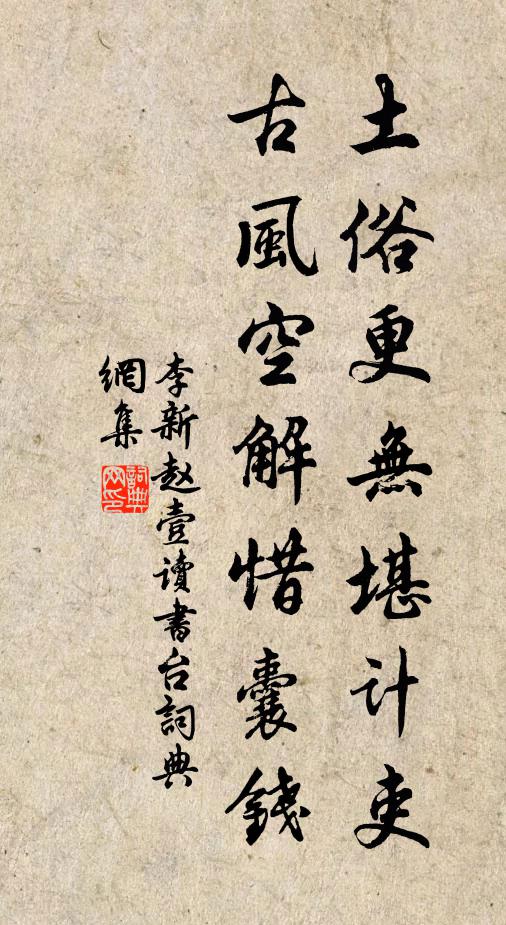 土俗更無堪計吏
古風空解惜囊錢
李新赵壹读書台詞典
網集
詞典网印